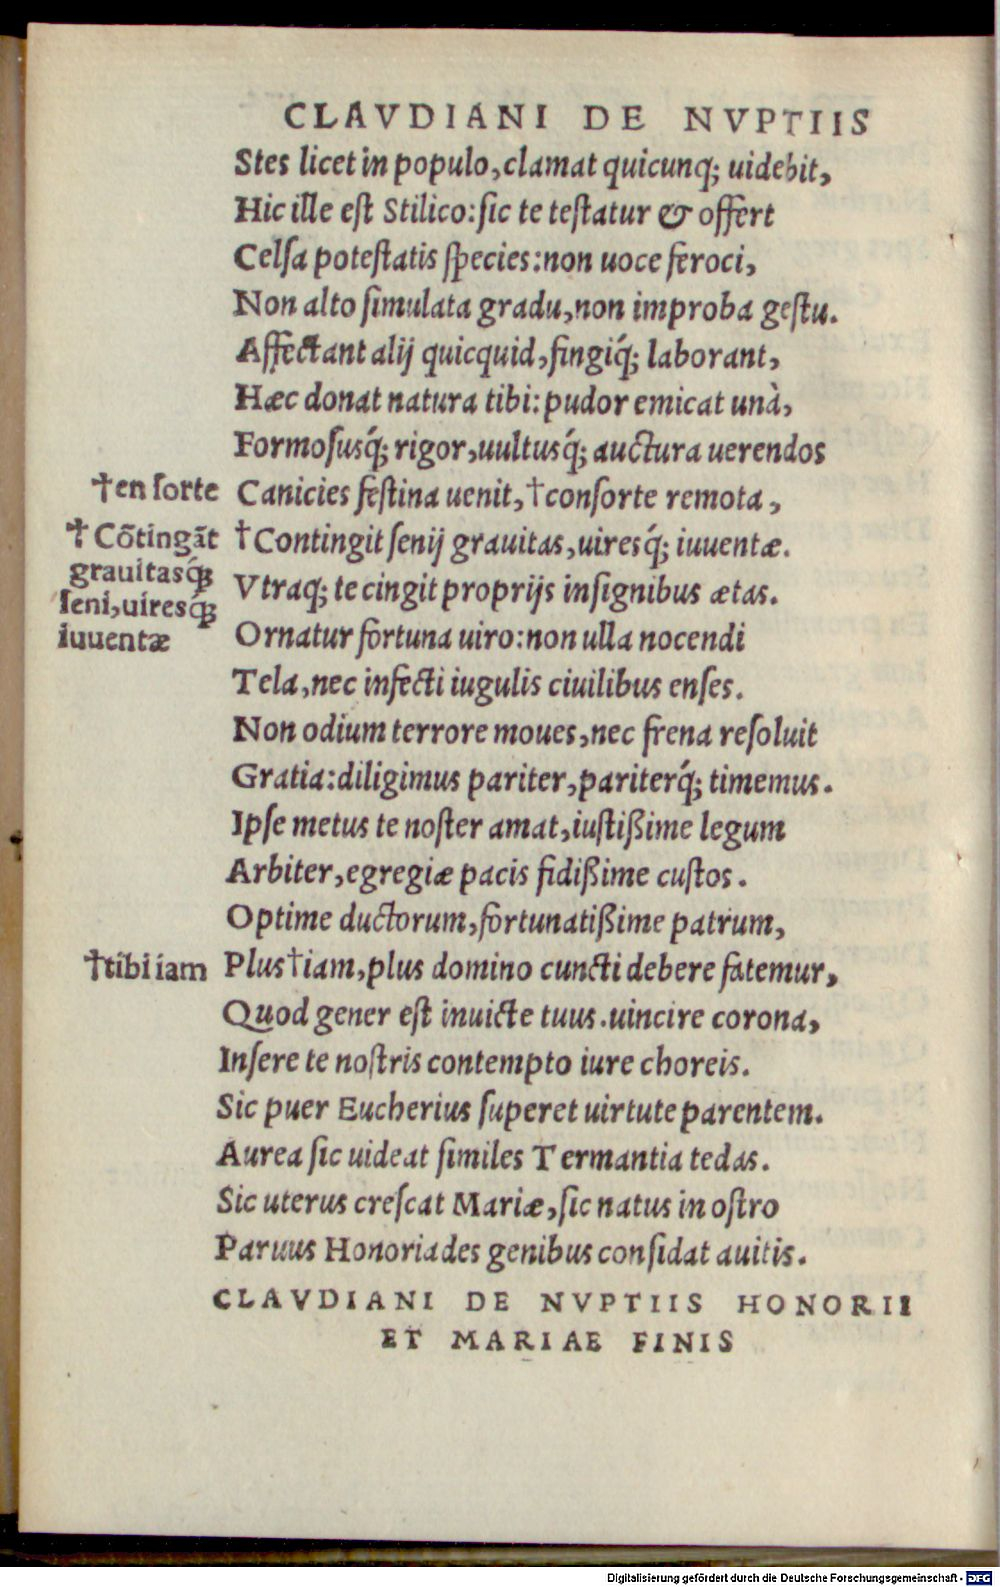 CLAVDIANI DE NVPTIIS
Stes licet in populo, clamat quicunq; uidebit,
Hic ille est Stilico: sic te testatur & offert
Celsa potestatis species: non uoce feroci,
Non alto simulata gradu, non improba gestu.
Affectant alij quicquid, fingiq́; laborant,
Hæc donat natura tibi: pudor emicat unà,
Formosusq́; rigor, uultusq́; auctura uerendos
†en sorte
Canicies festina uenit, †consorte remota,
†Cõtingãt
grauitasq́;
seni, uiresq́;
iuuentæ
†Contingit senij grauitas, uiresq́; iuuentæ.
Vtraq; te cingit proprijs insignibus ætas.
Ornatur fortuna uiro: non ulla nocendi
Tela, nec infecti iugulis ciuilibus enses.
Non odium terrore moues, nec frena resoluit
Gratia: diligimus pariter, pariterq́; timemus.
Ipse metus te noster amat, iustißime legum
Arbiter, egregiæ pacis fidißime custos.
Optime ductorum, fortunatißime patrum,
†tibi iam
Plus †iam, plus domino cuncti debere fatemur,
Quod gener est inuicte tuus. uincire corona,
Insere te nostris contempto iure choreis.
Sic puer Eucherius superet uirtute parentem.
Aurea sic uideat similes Termantia tedas.
Sic uterus crescat Mariæ, sic natus in ostro
Paruus Honoriades genibus considat auitis.
CLAVDIANI DE NVPTIIS HONORII
ET MARIAE FINIS
Digitalisierung gefördert durch die Deutsche Forschungsgemeinschaft - DFG